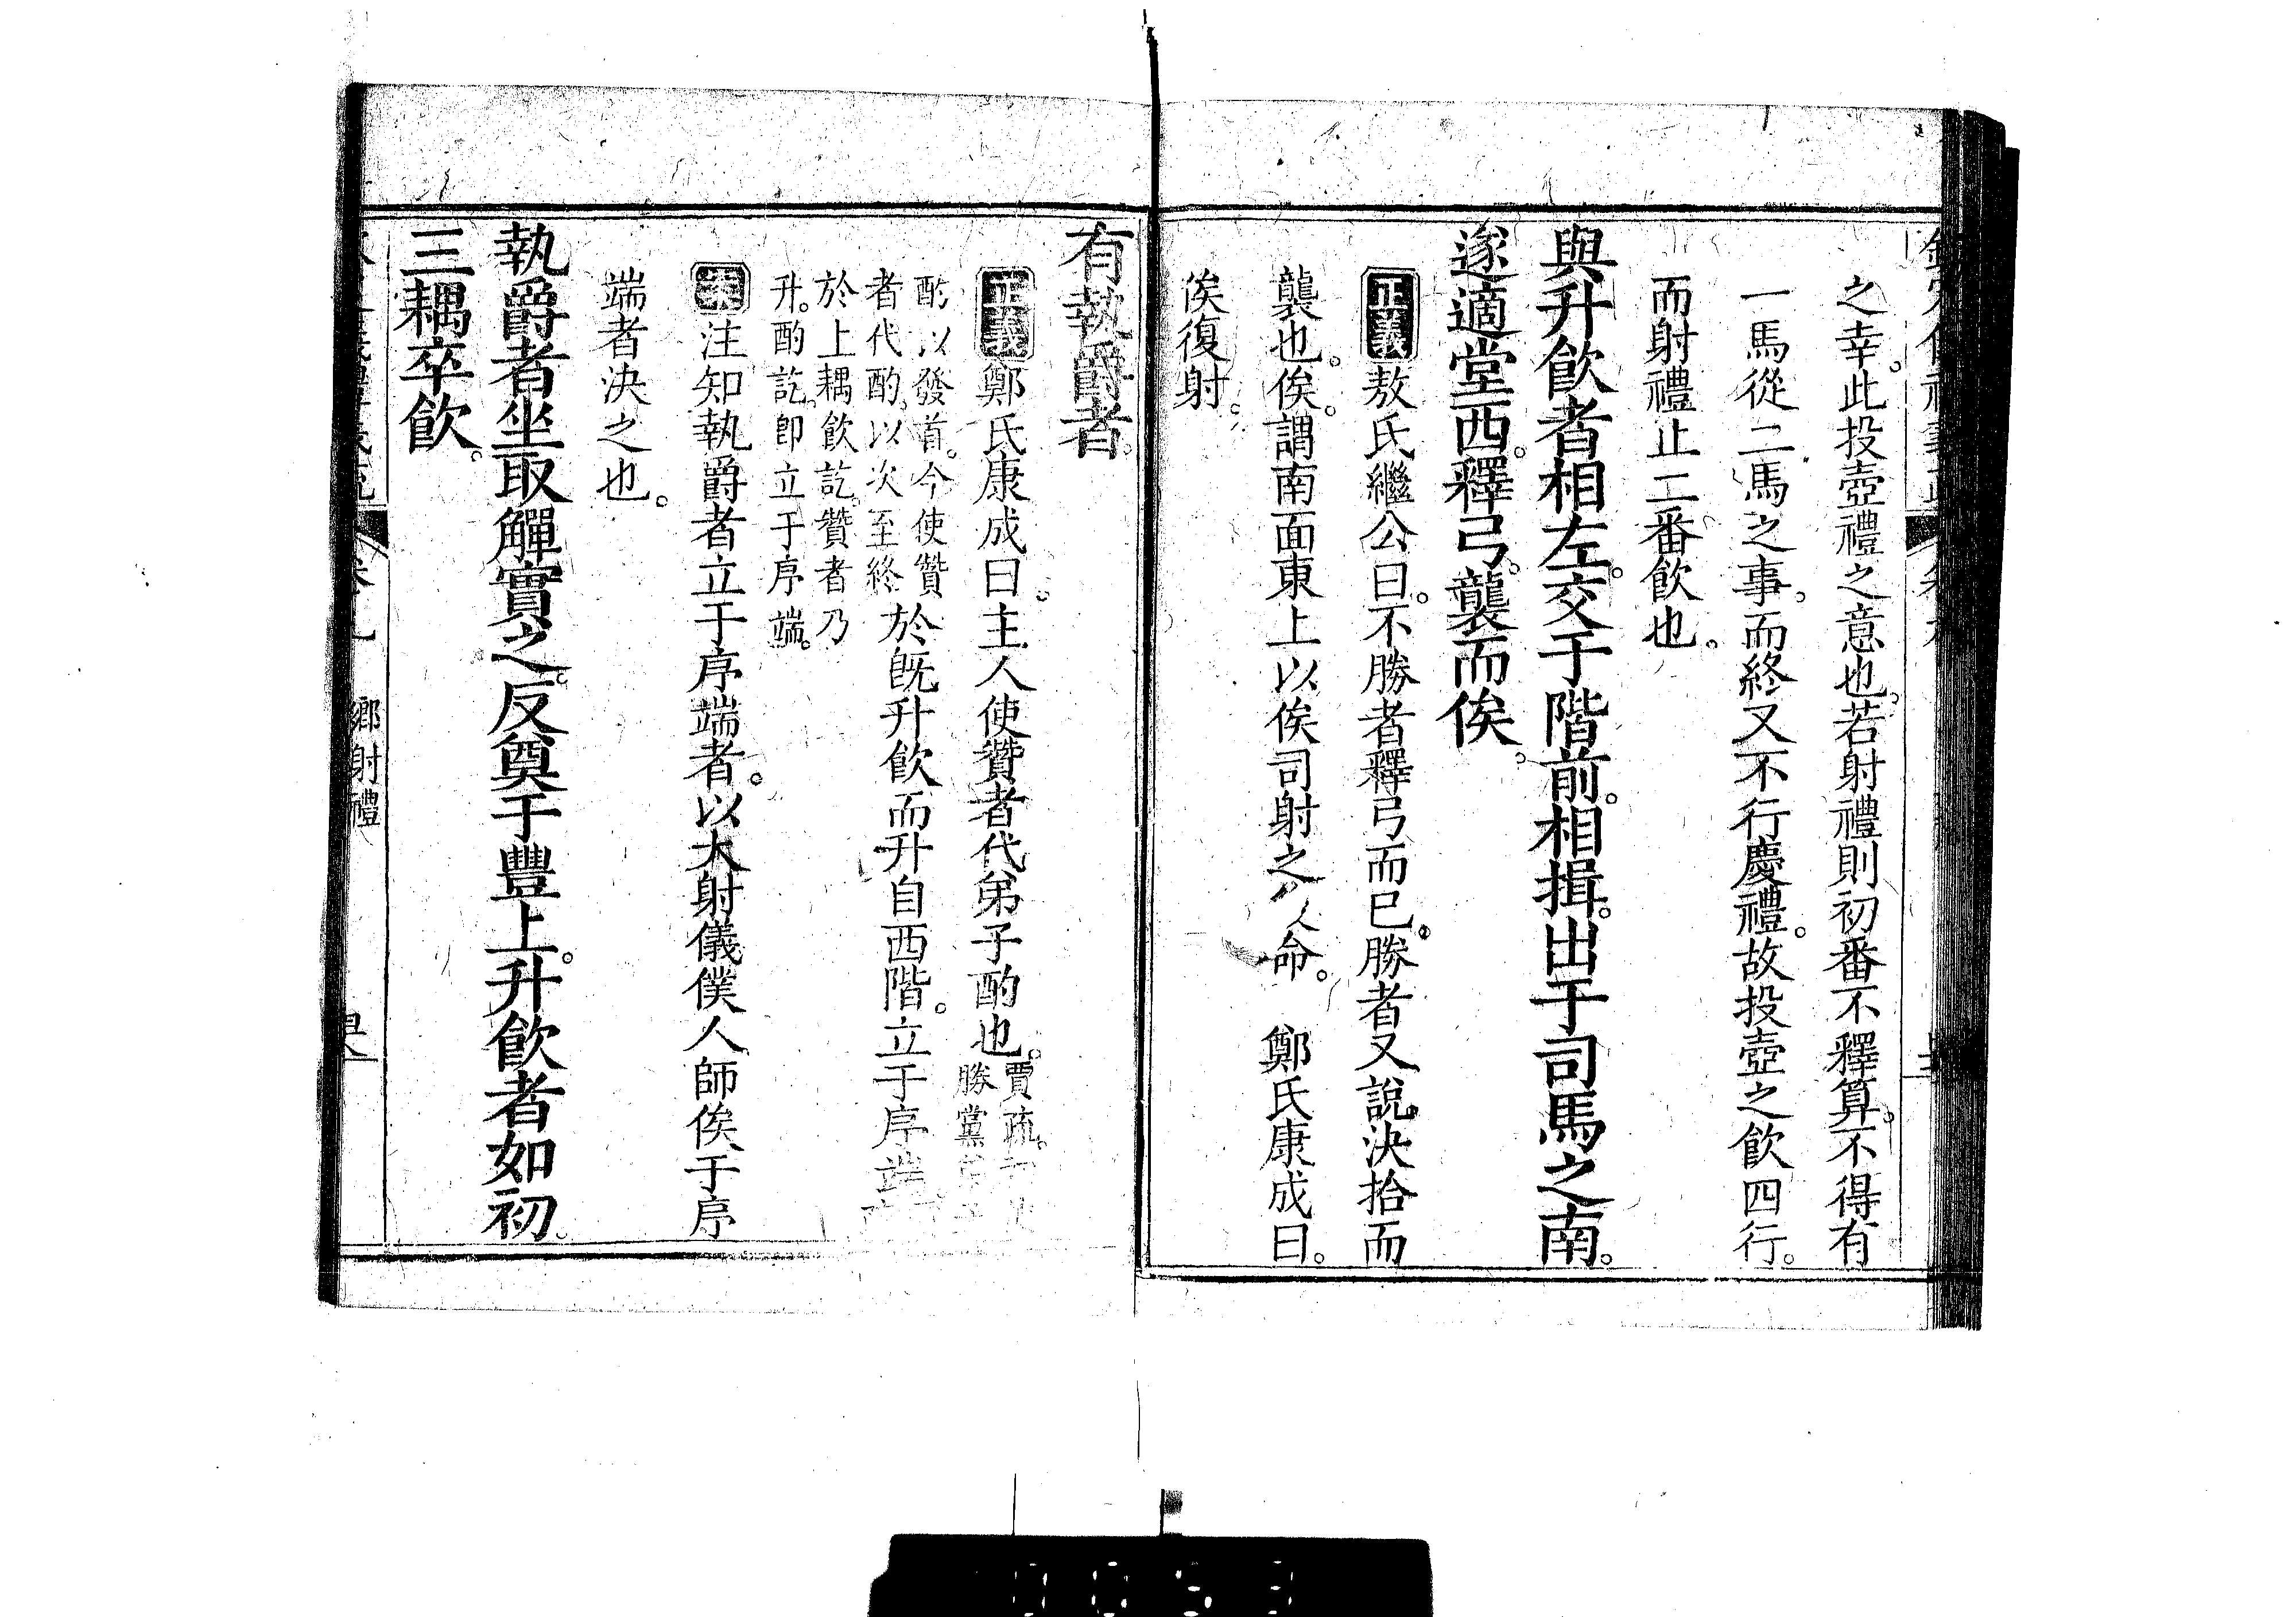 之幸。此投壺禮之意也。若射禮則初番不釋算。不得有
一馬從二馬之事。而終又不行慶禮。故投壺之飲四行。
而射禮止二番飲也。
與升飲者相左。交于階前。相揖。出于司馬之南。
遂適堂西。釋弓。襲而俟。
正義敖氏繼公曰。不勝者釋弓而已。勝者又說決拾而
襲也。俟。謂南面東上以俟司射之命。 鄭氏康成曰。
俟復射。
有執爵者。
正義鄭氏康成曰。主人使贊者代弟子酌也。賈疏。
勝黨
酌以發首。今使贊
者代酌。以次至終
於既升飲而升自西階。立于序端
於上耦飲訖。贊者乃
升。酌訖。卽立于序端。
案注知執爵者立于序端者。以大射儀僕人師俟于序
端者決之也。
執爵者坐取觶實之。反奠于豐上。升飲者如初。
三耦卒飲。
鄉射禮